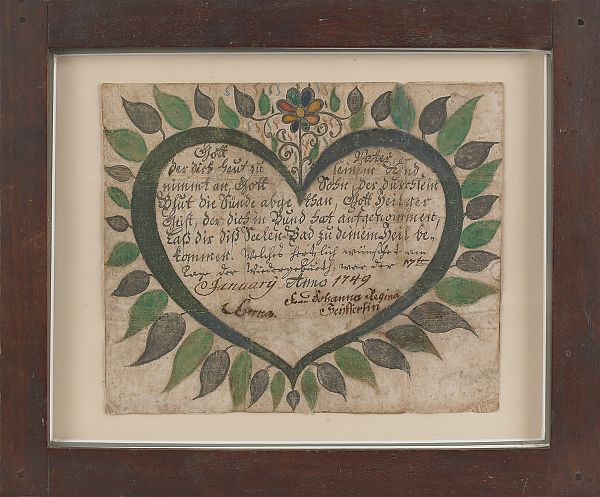 Gott Vater
der dich heut zu seinem Kind
nimmt an, Gott Sohn, der durch sein
Blut die Sünde abgethan, Gott heilger
Geist, der dich in Bund hat aufgenommen,
Laß dir diß Seelen-Bad zu deinem Heil be-
kommen. Welches hertzlich wünschet am
Tage der Wiedergeburth, war der 17ten
January Anno 1749
Johanna Regina